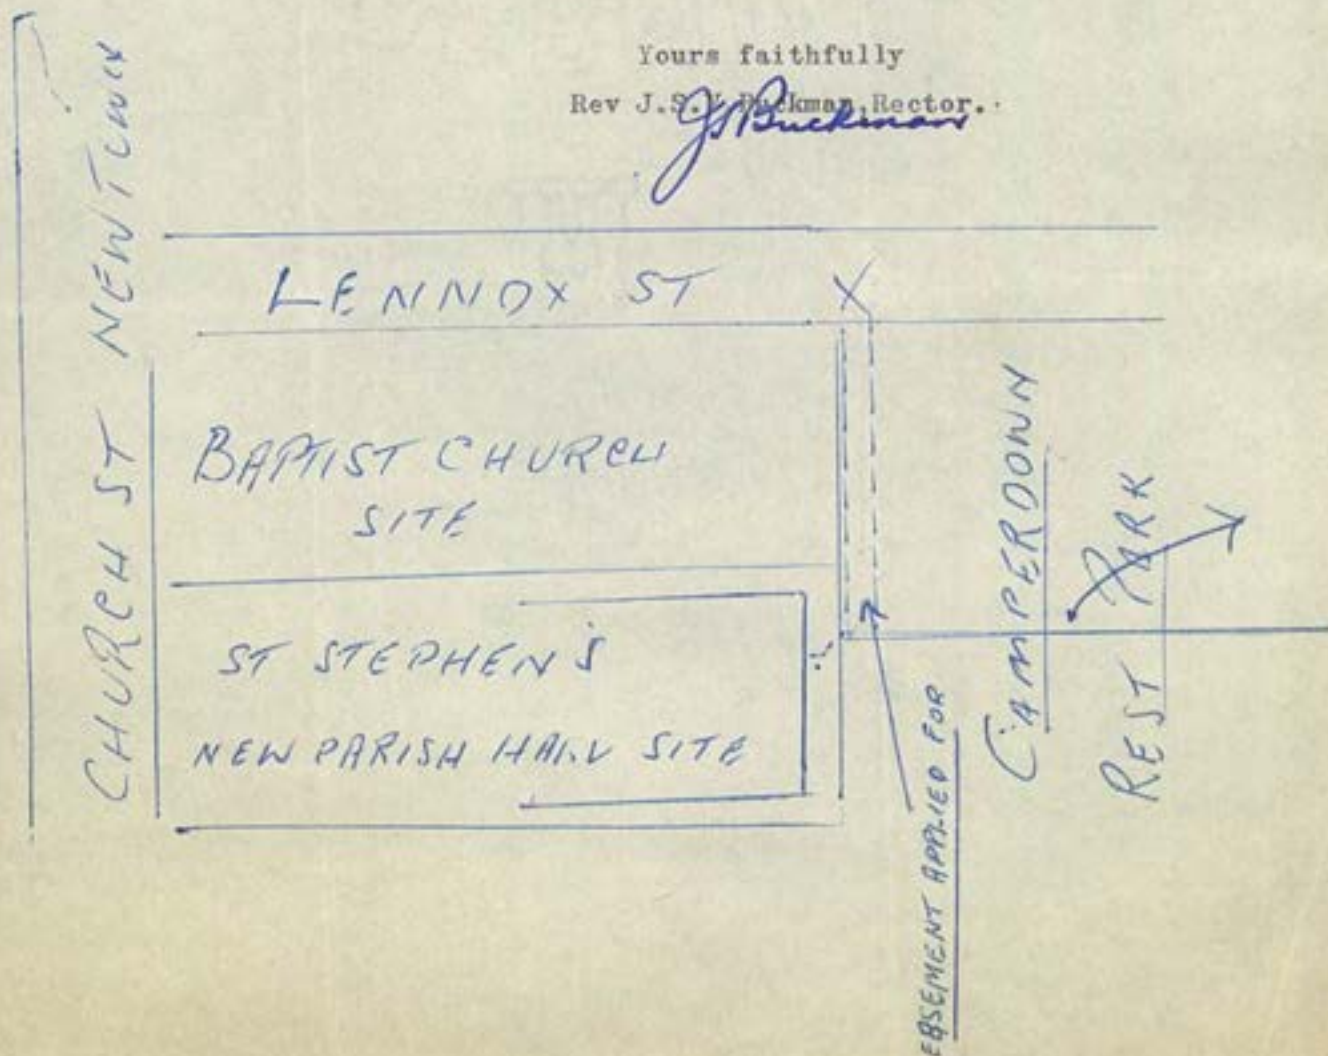 Yours faithfully
Rev J.S.W Buckman, Rector.
JS Buckman
CHURCH ST NEWTOWN
LENNOX ST
X
BAPTIST CHURCH
SITE
ST STEPHEN'S
NEW PARISH HALL SITE
EASEMENT APPLIED FOR
CAMPERDOWN
REST PARK